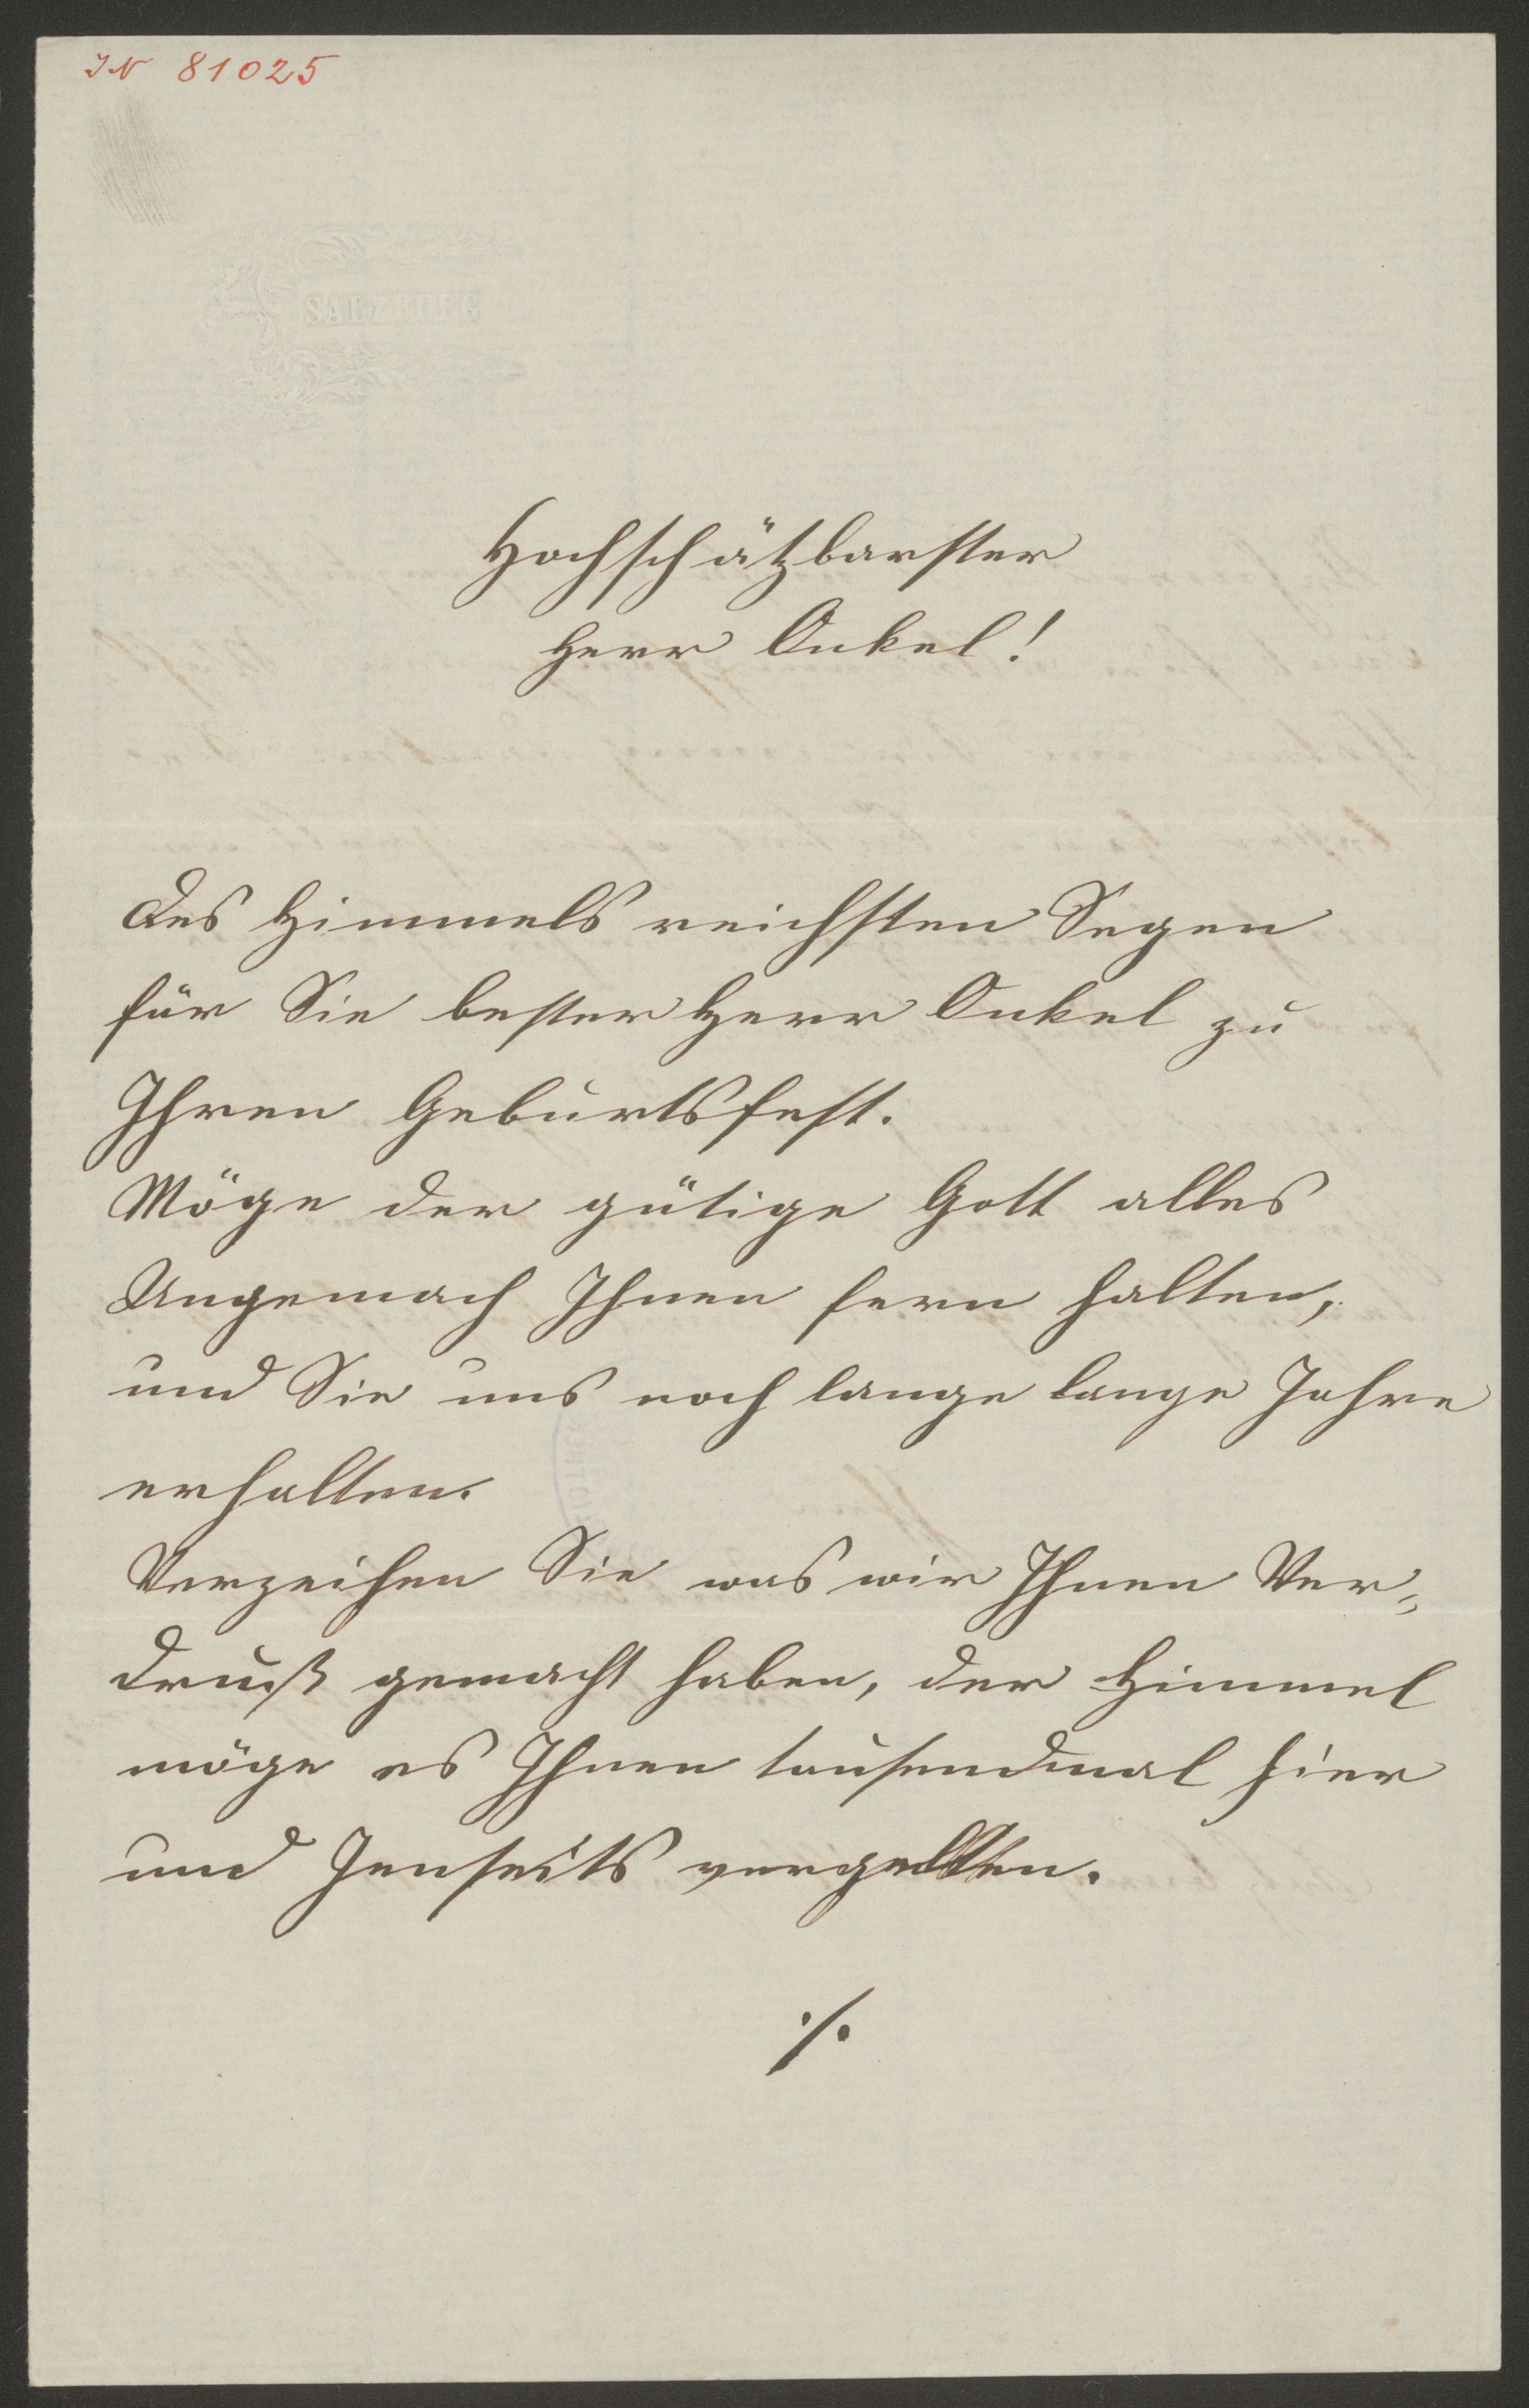 IN 81025
SALZBURG
Hochschätzbarster
Herr Onkel!
Des Himmels reichsten Segen
für Sie bester Herr Onkel zu
Ihren Geburtsfest.
Möge der gütige Gott alles
Ungemach Ihnen fern halten,
und Sie uns noch lange lange Jahre
erhalten.
Verzeihen Sie was wir Ihnen Ver=
druß gemacht haben, der Himmel
möge es Ihnen tausendmal hier
und Jenseits vergelten.
./.